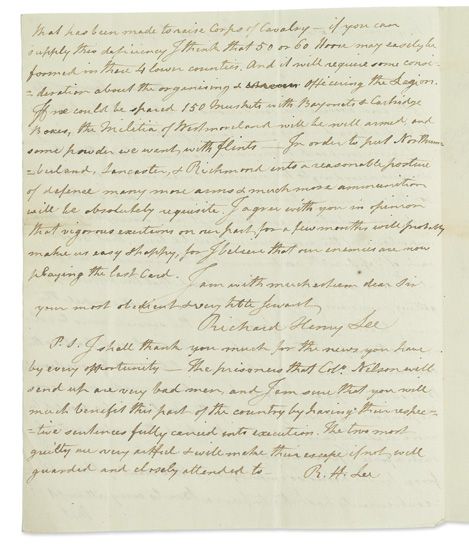 that has been made to raise Corps of Cavalry — if you can
supply this deficiency I think that 50 or 60 Horse may easily be
formed in these 4 lower counties. And it will require some consi-
=deration about the organising & officering the Legion.
If we could be spared 150 Muskets with Bayonets & Cartridge
Boxes, the Militia of Westmoreland will be well armed, and
some powder we want, with flints — In order to put Northum
=berland, Lancaster, & Richmond into a reasonable posture
of defence many more arms & much more ammunition
will be absolutely requisite. I agree with you in opinion
that vigorous exertions on our part, for a few months, will probably
make us easy & happy, for I believe that our enemies are now
playing the last Card. I am with much esteem dear Sir
your most obedient & very hble Servant
Richard Henry Lee
P. S. I shall thank you much for the news you have
by every opportunity — The prisoners that Colo. Nelson will
send up are very bad men, and I am sure that you will
much benefit this part of the country by having their respec-
=tive sentences fully carried into execution. The two most
guilty are very artful & will make their escape if not well
guarded and closely attended to — R. H. Lee